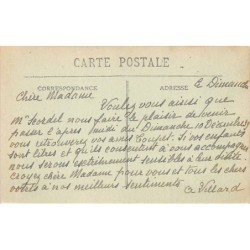 CARTE POSTALE
CORRESPONDANCE
ADRESSE
Chère Madame
Voulez vous ainsi que
Mr Sordel nous faire le plaisir de venir
passer l'après midi du Dimanche 10 Décembre
vous retrouverez vos avec Coupet. Si vos enfants
sont libres et qu'ils consentent à vous accompagner
nous serons extrêmement sensibles à leur visite.
croyez chère Madame pour vous et tous les chers
votres à nos meilleurs sentiments